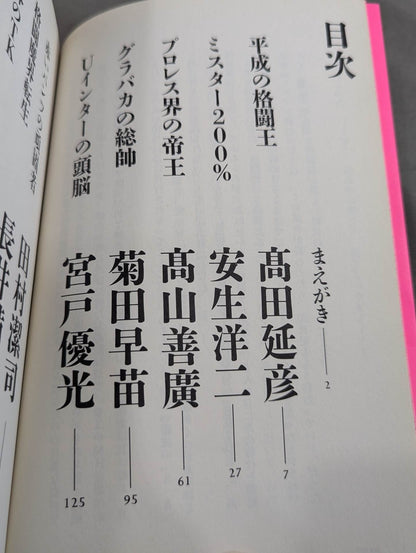 目次
まえがき 2
平成の格闘王 髙田延彦 7
ミスター200% 安生洋二 27
プロレス界の帝王 髙山善廣 61
グラバカの総帥 菊田早苗 95
Uインターの頭脳 宮戸優光 125
田村潔司